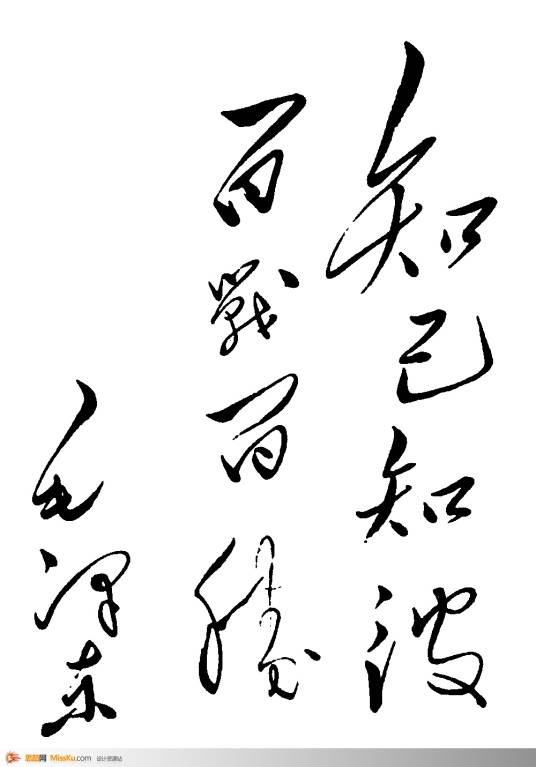 知己知彼
百戰百勝
毛澤东
思酷网 MissKu.com 设计资源站